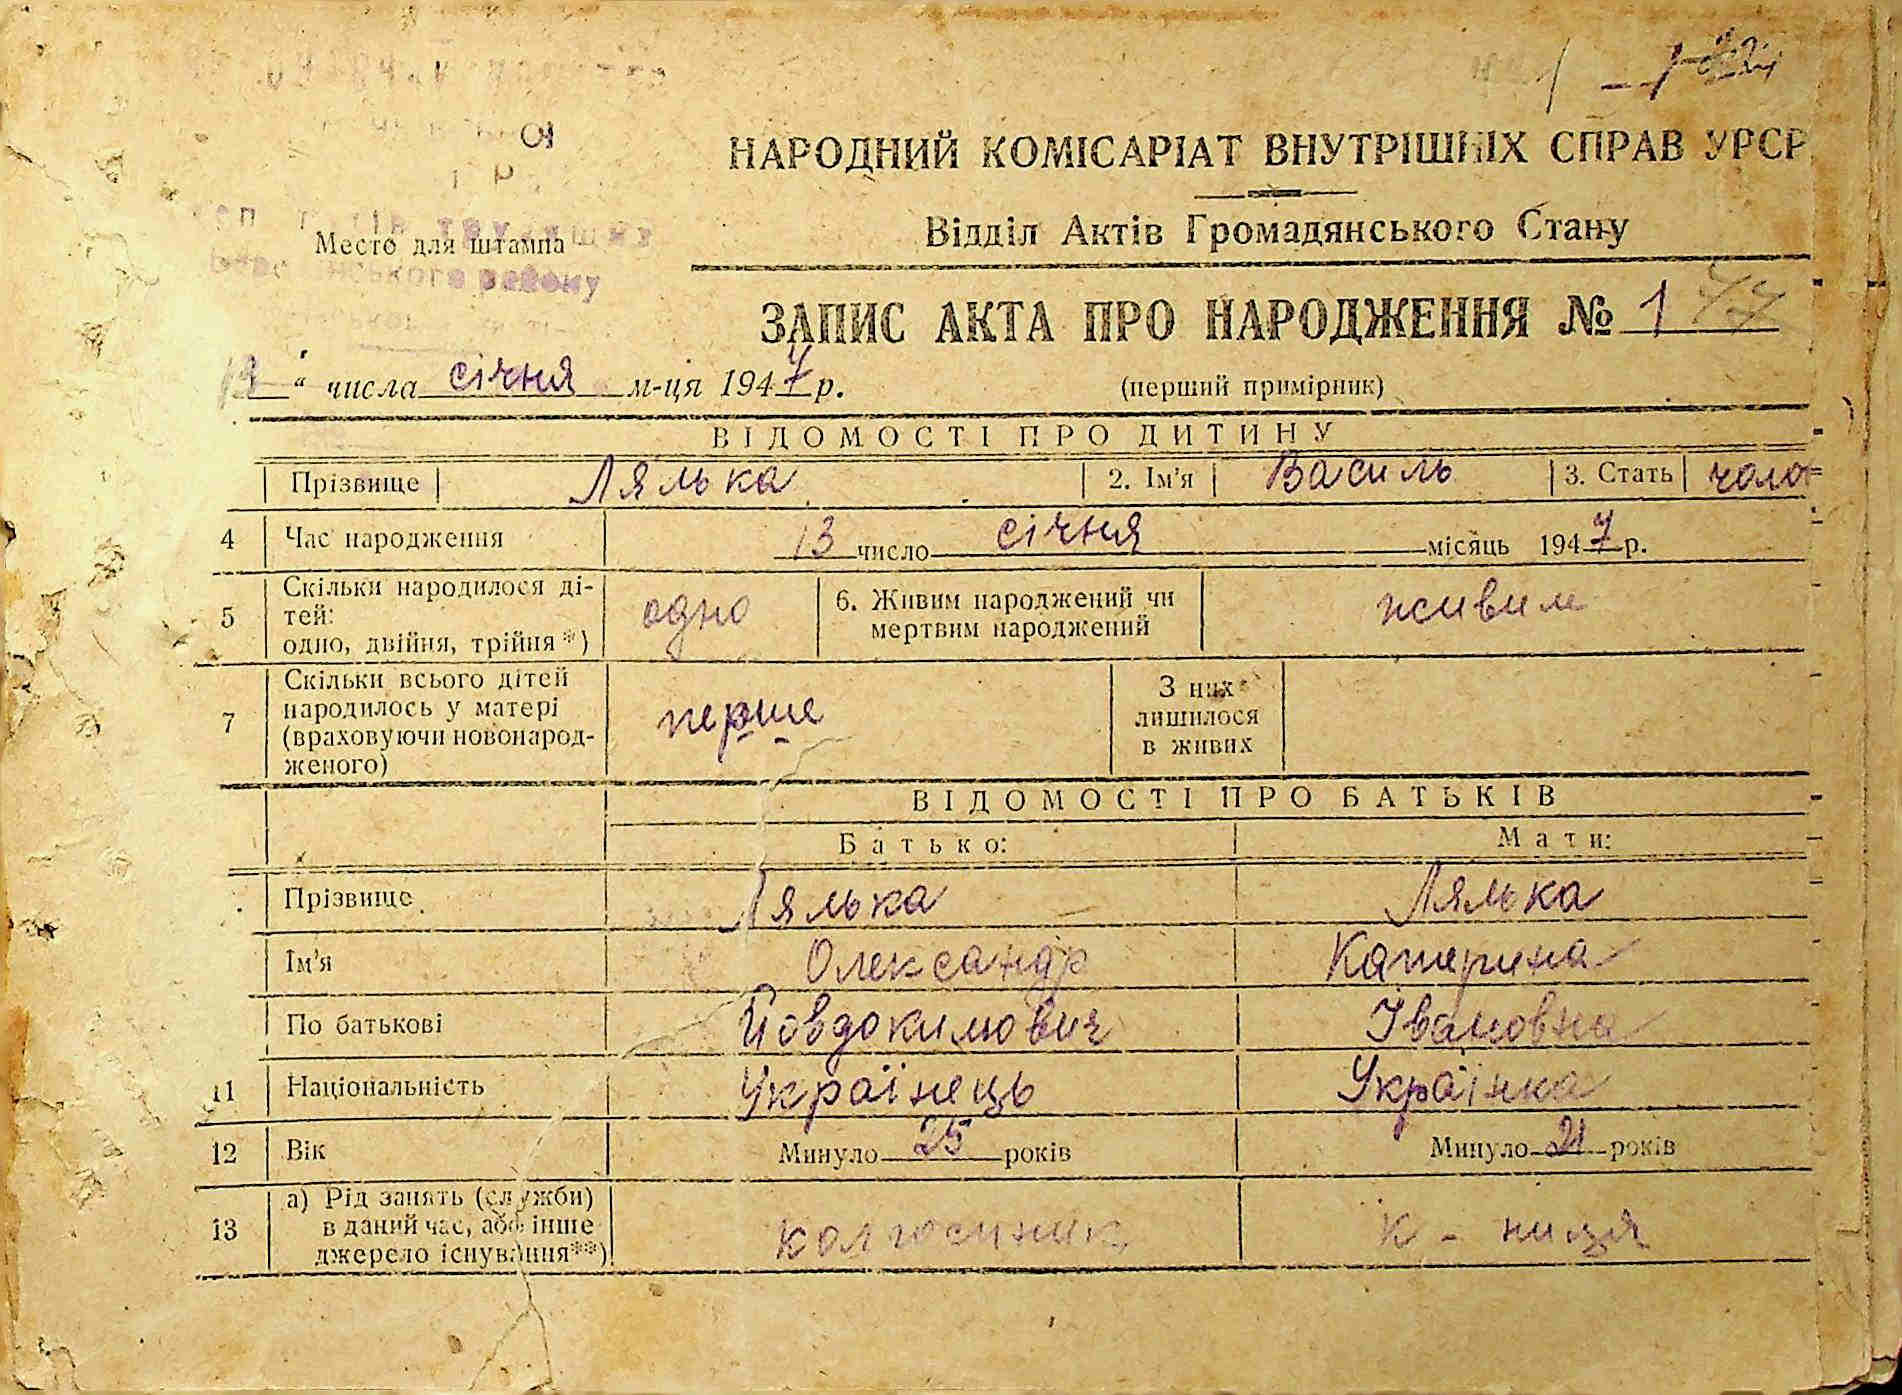 НАРОДНИЙ КОМІСАРІАТ ВНУТРІШНІХ СПРАВ УРСР
Відділ Актів Громадянського Стану
Место для штампа
району
ЗАПИС АКТА ПРО НАРОДЖЕННЯ № 1
" числа січня м-ця 1947 р.
(перший примірник)
ВІДОМОСТІ ПРО ДИТИНУ
Прізвище Лялька 2. Ім'я Василь 3. Стать чолов
4 Час народження 13 число січня місяць 1947 р.
5 Скільки народилося ді-
тей:
одно, двійня, трійня*)
одно
6. Живим народжений чи
мертвим народжений
живим
7 Скільки всього дітей
народилось у матері
(враховуючи новонарод-
женого)
перше
З них
лишилося
в живих
ВІДОМОСТІ ПРО БАТЬКІВ
Батько: Мати:
Прізвище Лялька Лялька
Ім'я Олександр Катерина
По батькові Йовдокимович Івановна
11 Національність Українець Українка
12 Вік Минуло 25 років Минуло 21 років
13 а) Рід занять (служби)
в даний час, або інше
джерело існування**)
колгоспник к-ниця